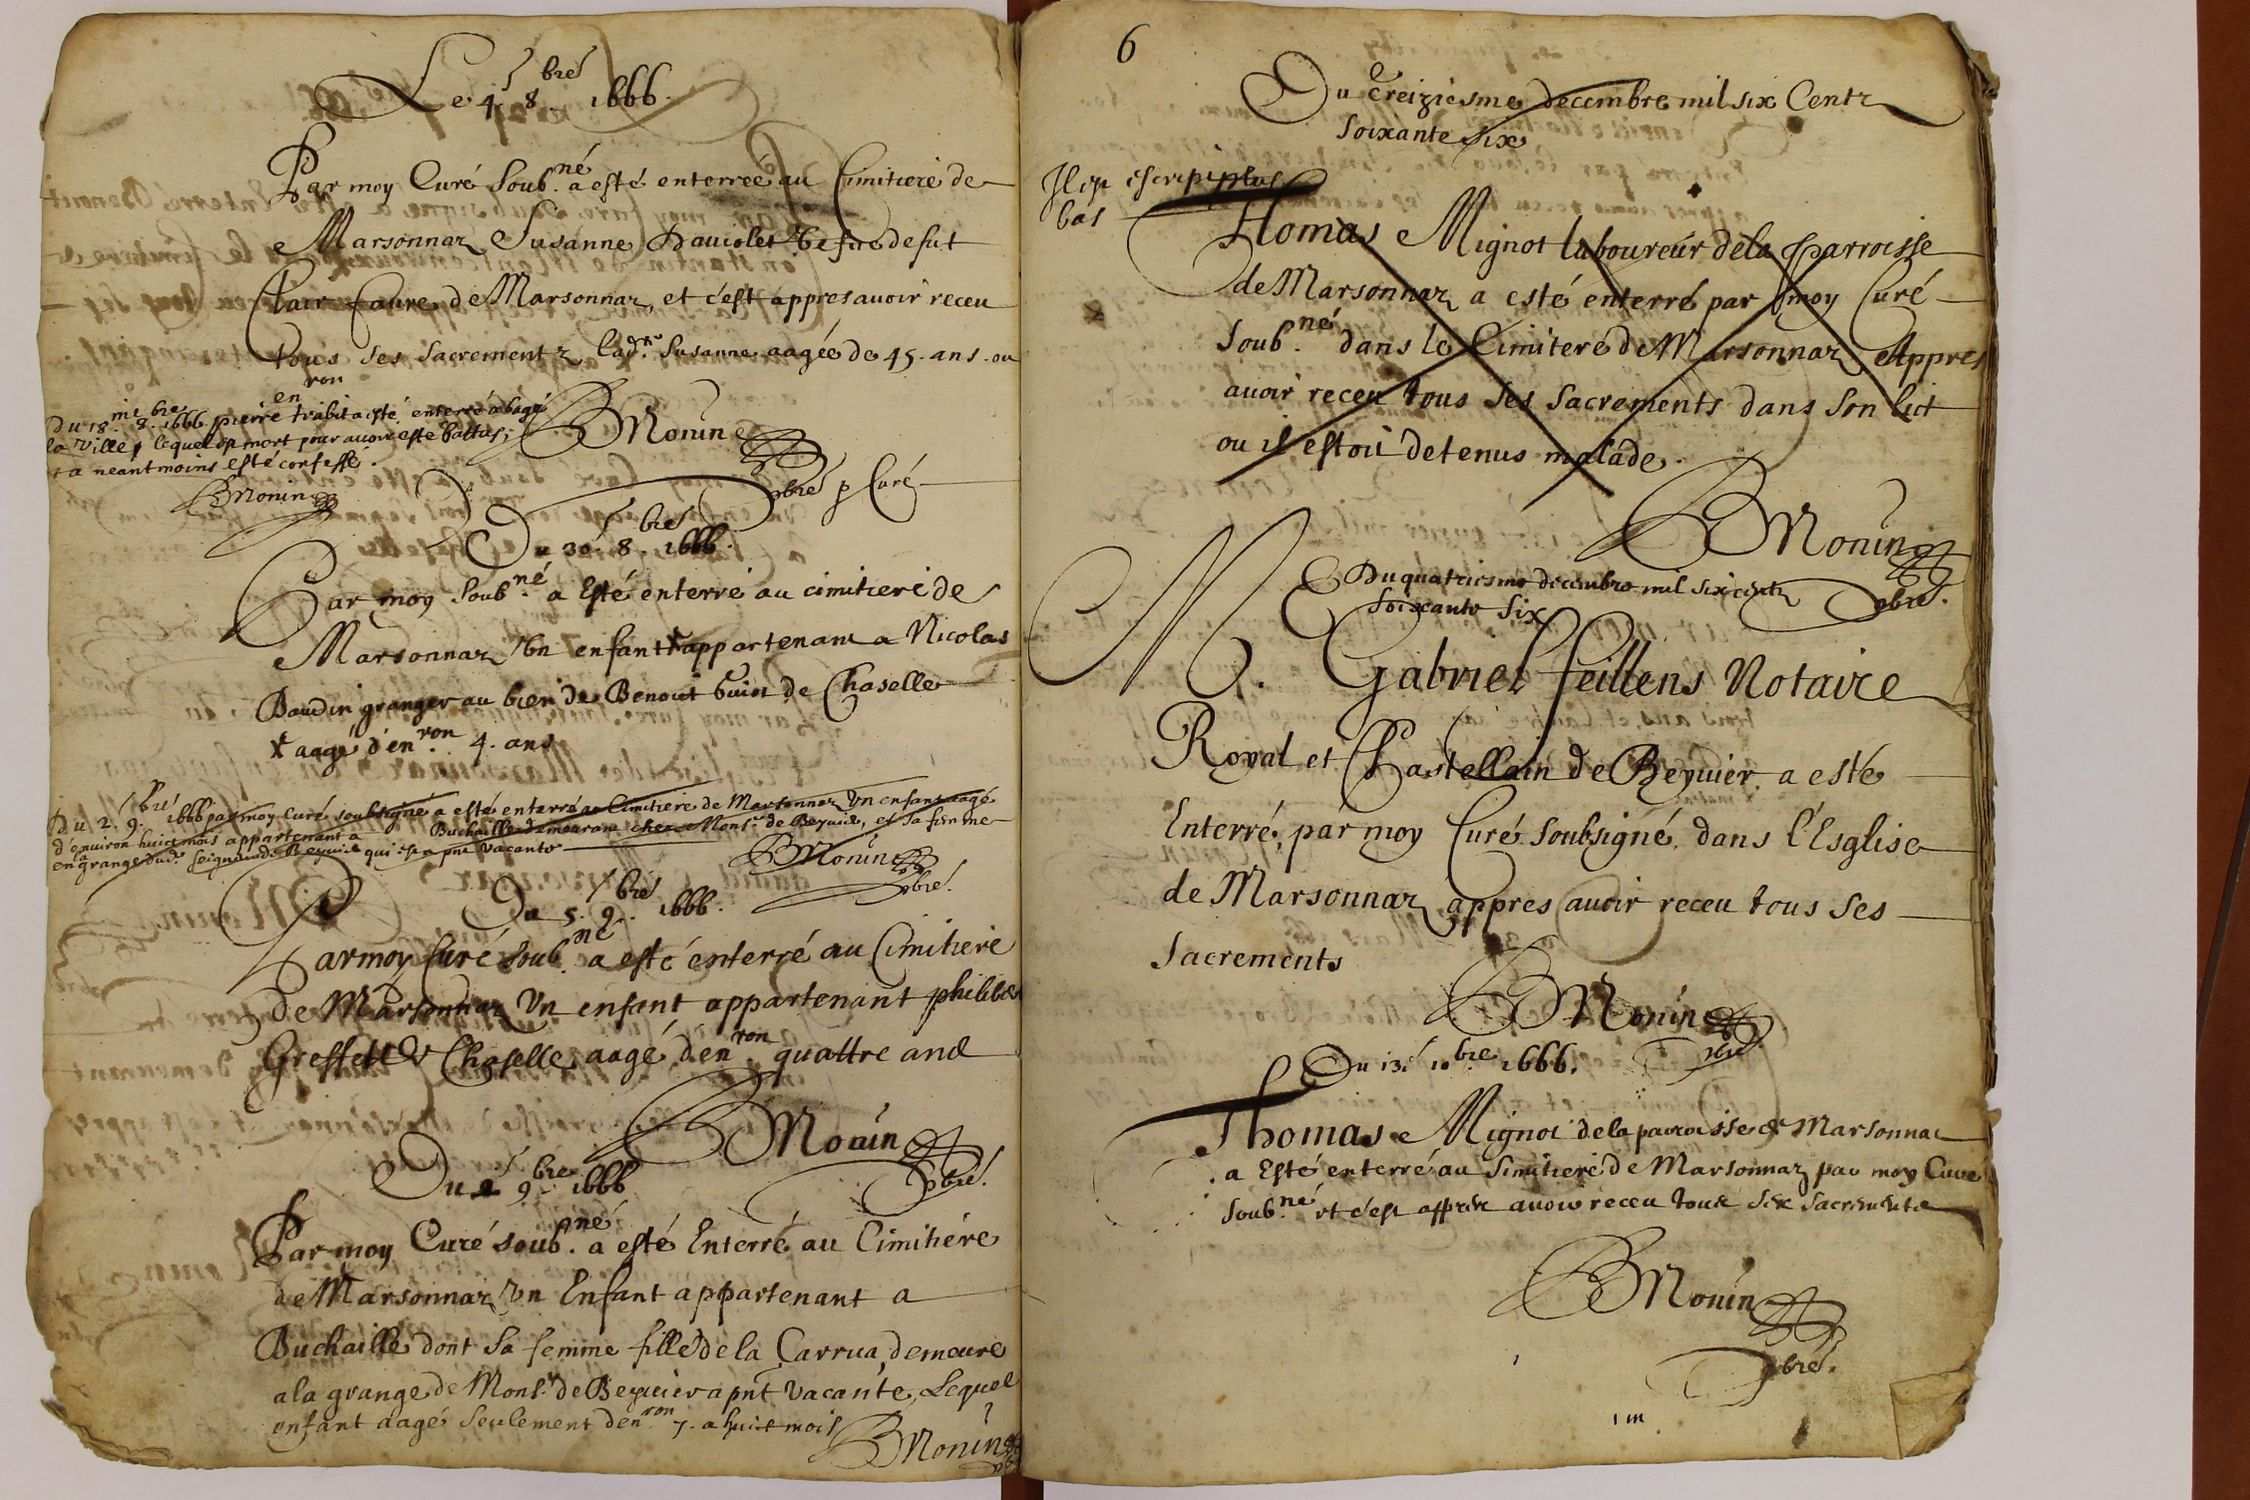 Le 4. 8.bre 1666.
Par moy Curé Soub.né a esté enterrée au Cimitiere de
Marsonnaz Susanne Dauiolet de fut
Clair Faure de Marsonnaz, et c'est appres auoir receu
tous ses sacrementz Susanne aagée de 45. ans. ou
enron
BMonin
pbre p Curé
Du 18.me 8.bre 1666 pierre trabit a esté enterré a bagé
la ville lequel est mort pour auoir esté battus,
et a neantmoins esté confessé.
BMonin
Du 30. 8.bre 1666.
Par moy Soub.né a Esté enterré au cimitiere de
Marsonnaz Vn enfant appartenant a Nicolas
Baudin granger au bien de Benoit Guiot de Chaselle
aagé d'en.ron 4. ans
Du 2. 9.bre 1666 par moy Curé soubsigné a esté enterré au Cimitiere de Marsonnaz Vn enfant aagé
d'enuiron huict mois appartenant a Buchaille demeurant chez Mons.r de Beyuier, et sa femme
en la grange dud. Seigneur de Beyuier qui est a pnt Vacante
BMonin
pbre.
Du 5. 9.bre 1666.
Par moy Curé Soub.né a esté enterré au Cimitiere
de Marsonnaz Vn enfant appartenant philiber
Greffet de Chaselle, aagé d'en.ron quattre ans
BMonin
pbre.
Du 9.bre 1666
Par moy Curé soub.né a esté Enterré au Cimitiére
de Marsonnaz Vn Enfant appartenant a
Buchaille dont sa femme fille de la Carrua, demeure
a la grange de Mons.r de Beyuier a pnt Vacante, Lequel
enfant aagé seulement den.ron 7. a huict mois
BMonin
6
Du treiziesme decembre mil six Centz
soixante six
Il est escript plus
bas
Thomas Mignot laboureur de la parroisse
de Marsonnaz a esté enterré par moy Curé
soub.né dans le Cimitere de Marsonnaz Appres
auoir receu tous ses sacrements dans son lict
ou il estoit detenus malade.
BMonin
pbre.
Du quatriesme decembre mil six centz
soixante six
M. Gabriel feillens Notaire
Royal et Chastellain de Beyuier, a esté
Enterré, par moy Curé soubsigné, dans l'Esglise
de Marsonnaz appres auoir receu tous ses
sacrements
BMonin
pbre
Du 13. 10.bre 1666.
Thomas Mignot de la parroisse de Marsonnaz
a Esté enterré au Simitiere de Marsonnaz par moy Curé
soub.né et c'est appres auoir receu tous ses sacrements
BMonin
pbre.